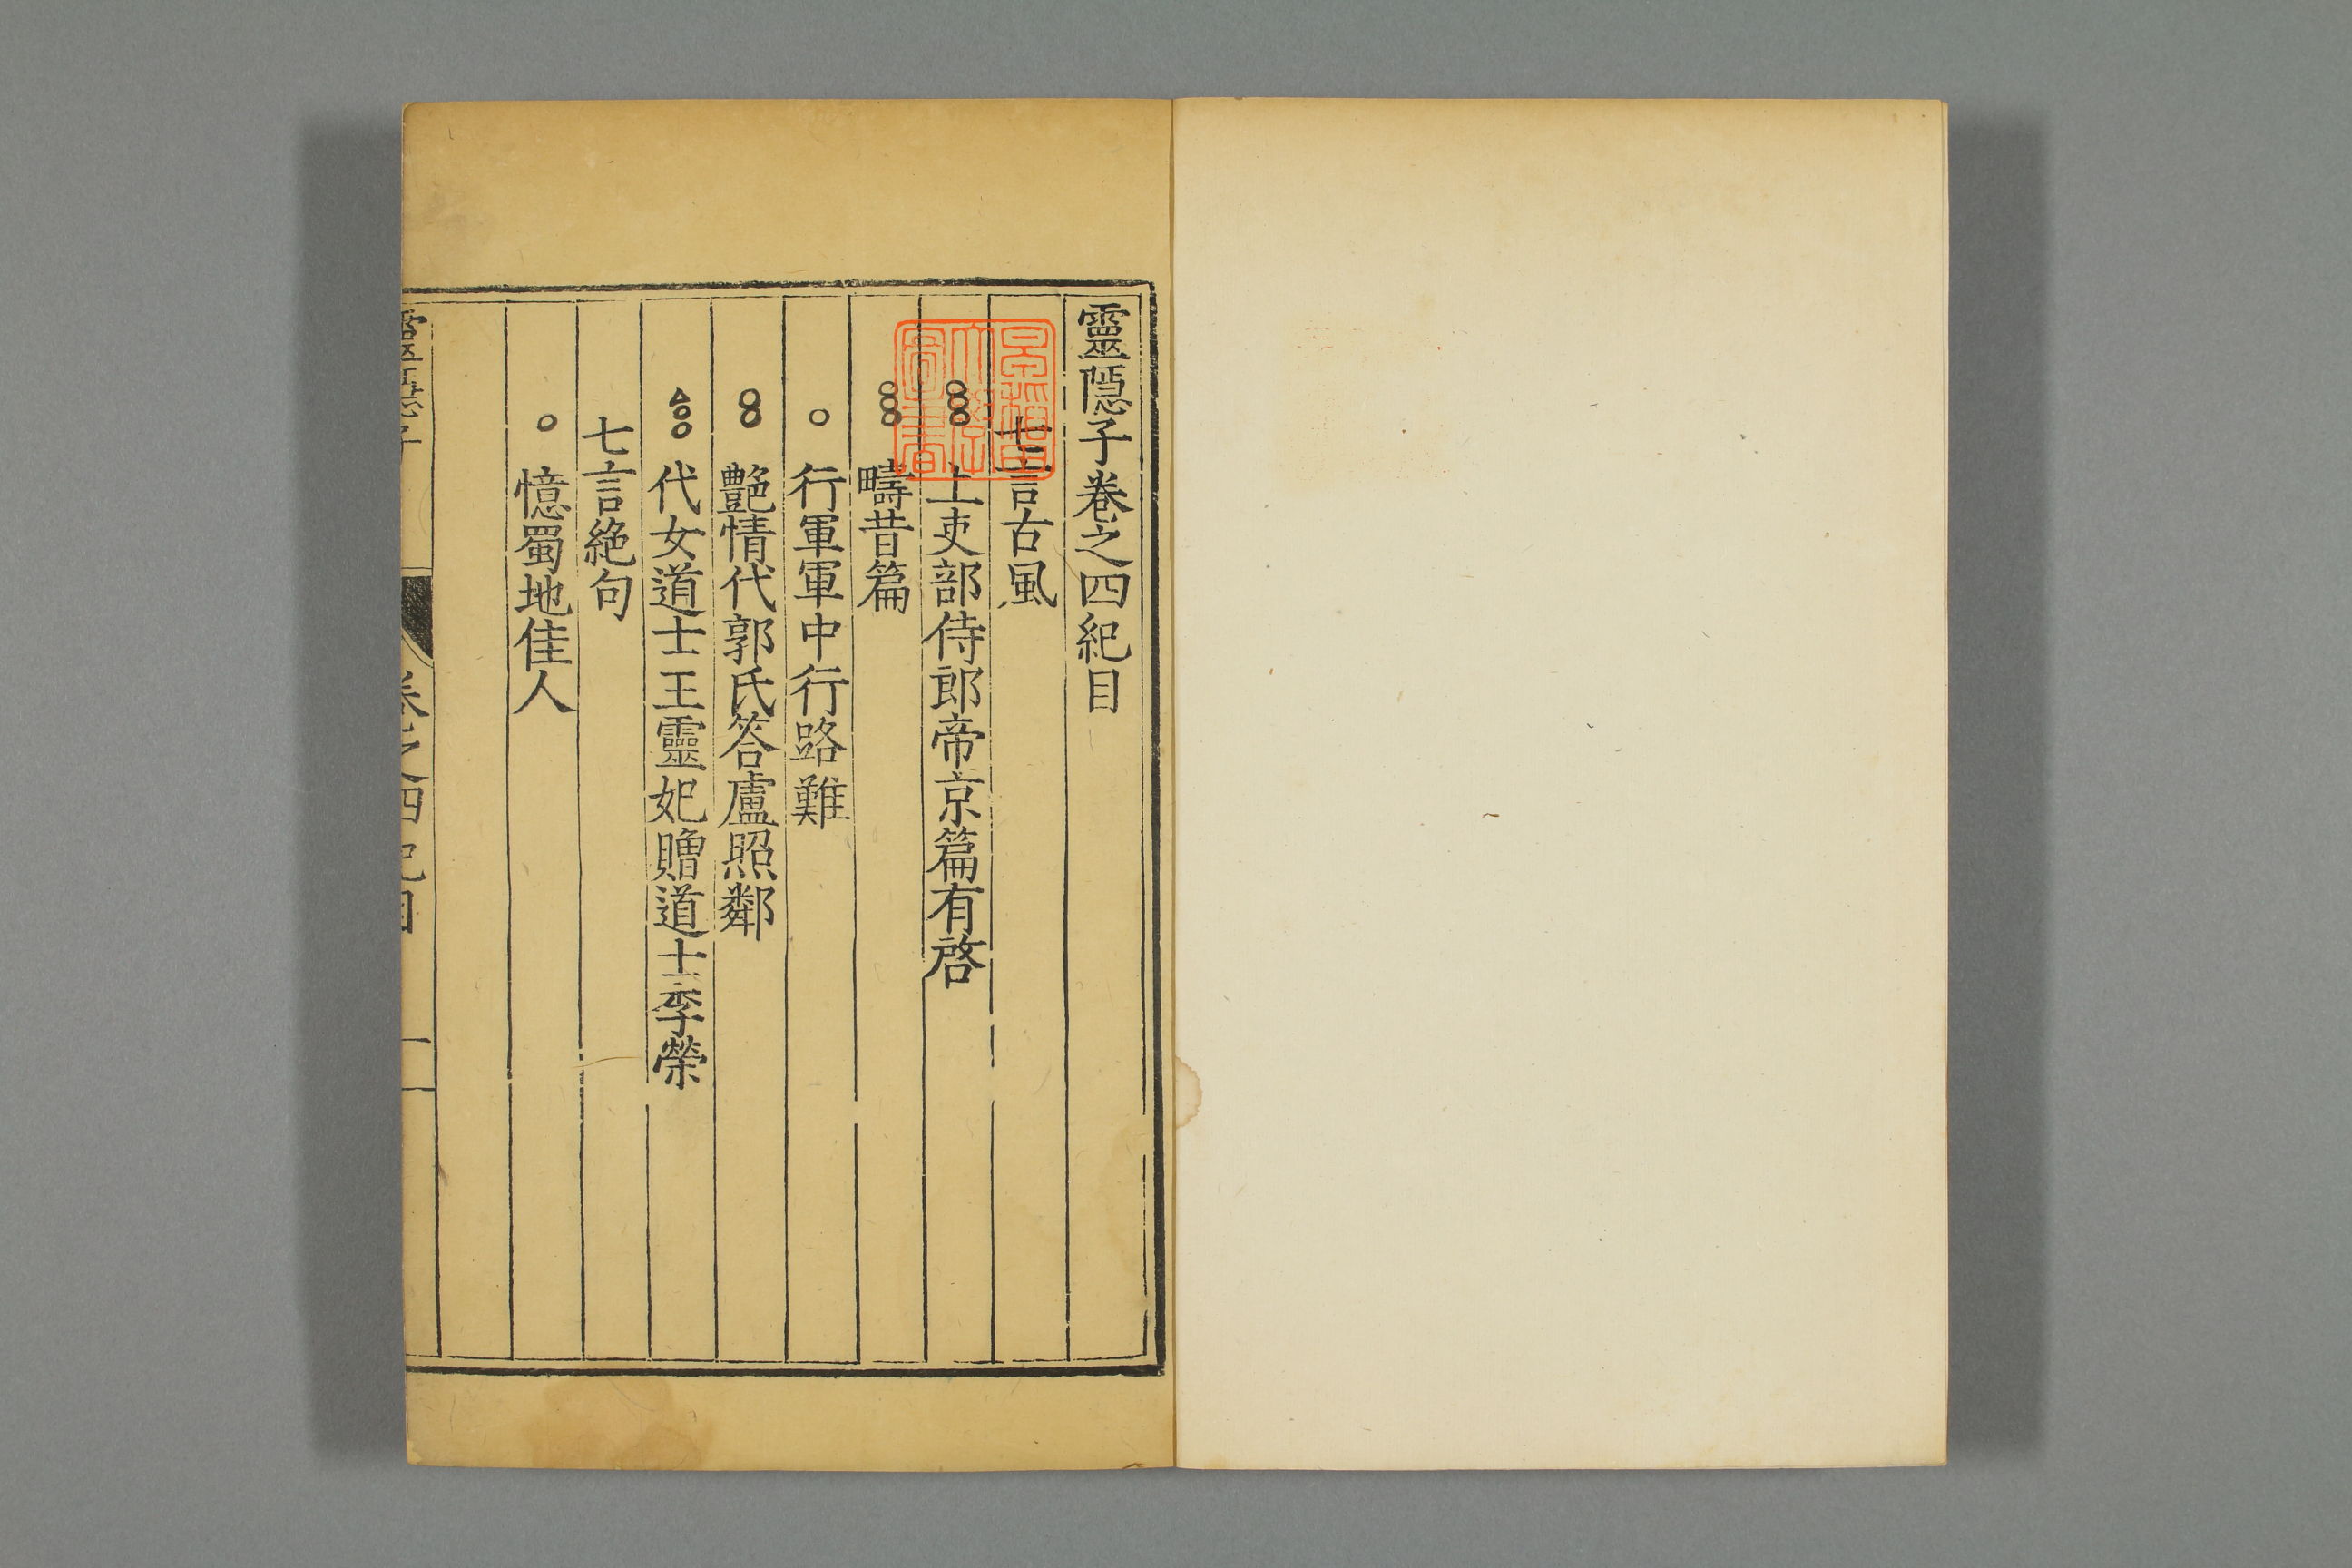 靈隱子卷之四紀目
七言古風
上吏部侍郎帝京篇有啓
疇昔篇
行軍軍中行路難
艷情代郭氏答盧照鄰
代女道士王靈妃贈道士李榮
七言絶句
憶蜀地佳人
靈隱子 卷之四紀目 一